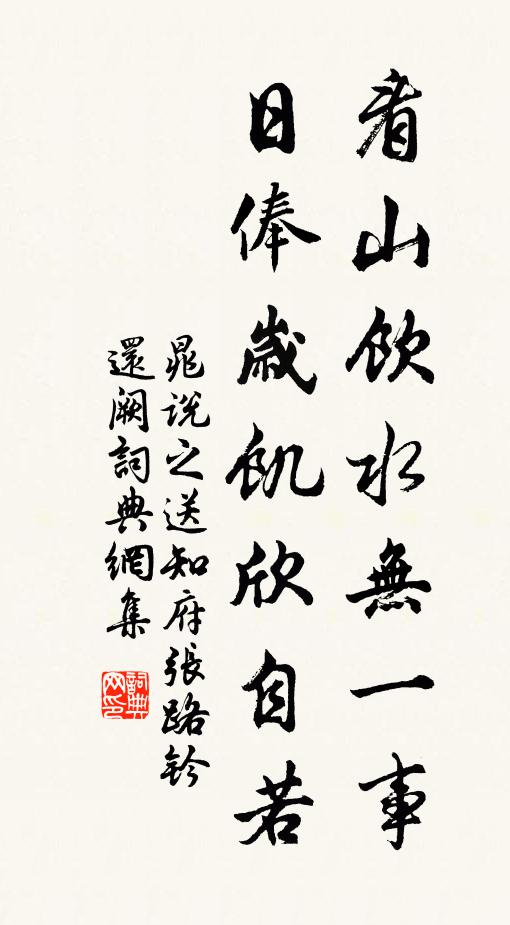 看山飲水無一事
日俸歲飢欣自若
晁說之送知府張路鈐
還闕詞典網集
詞典
网印